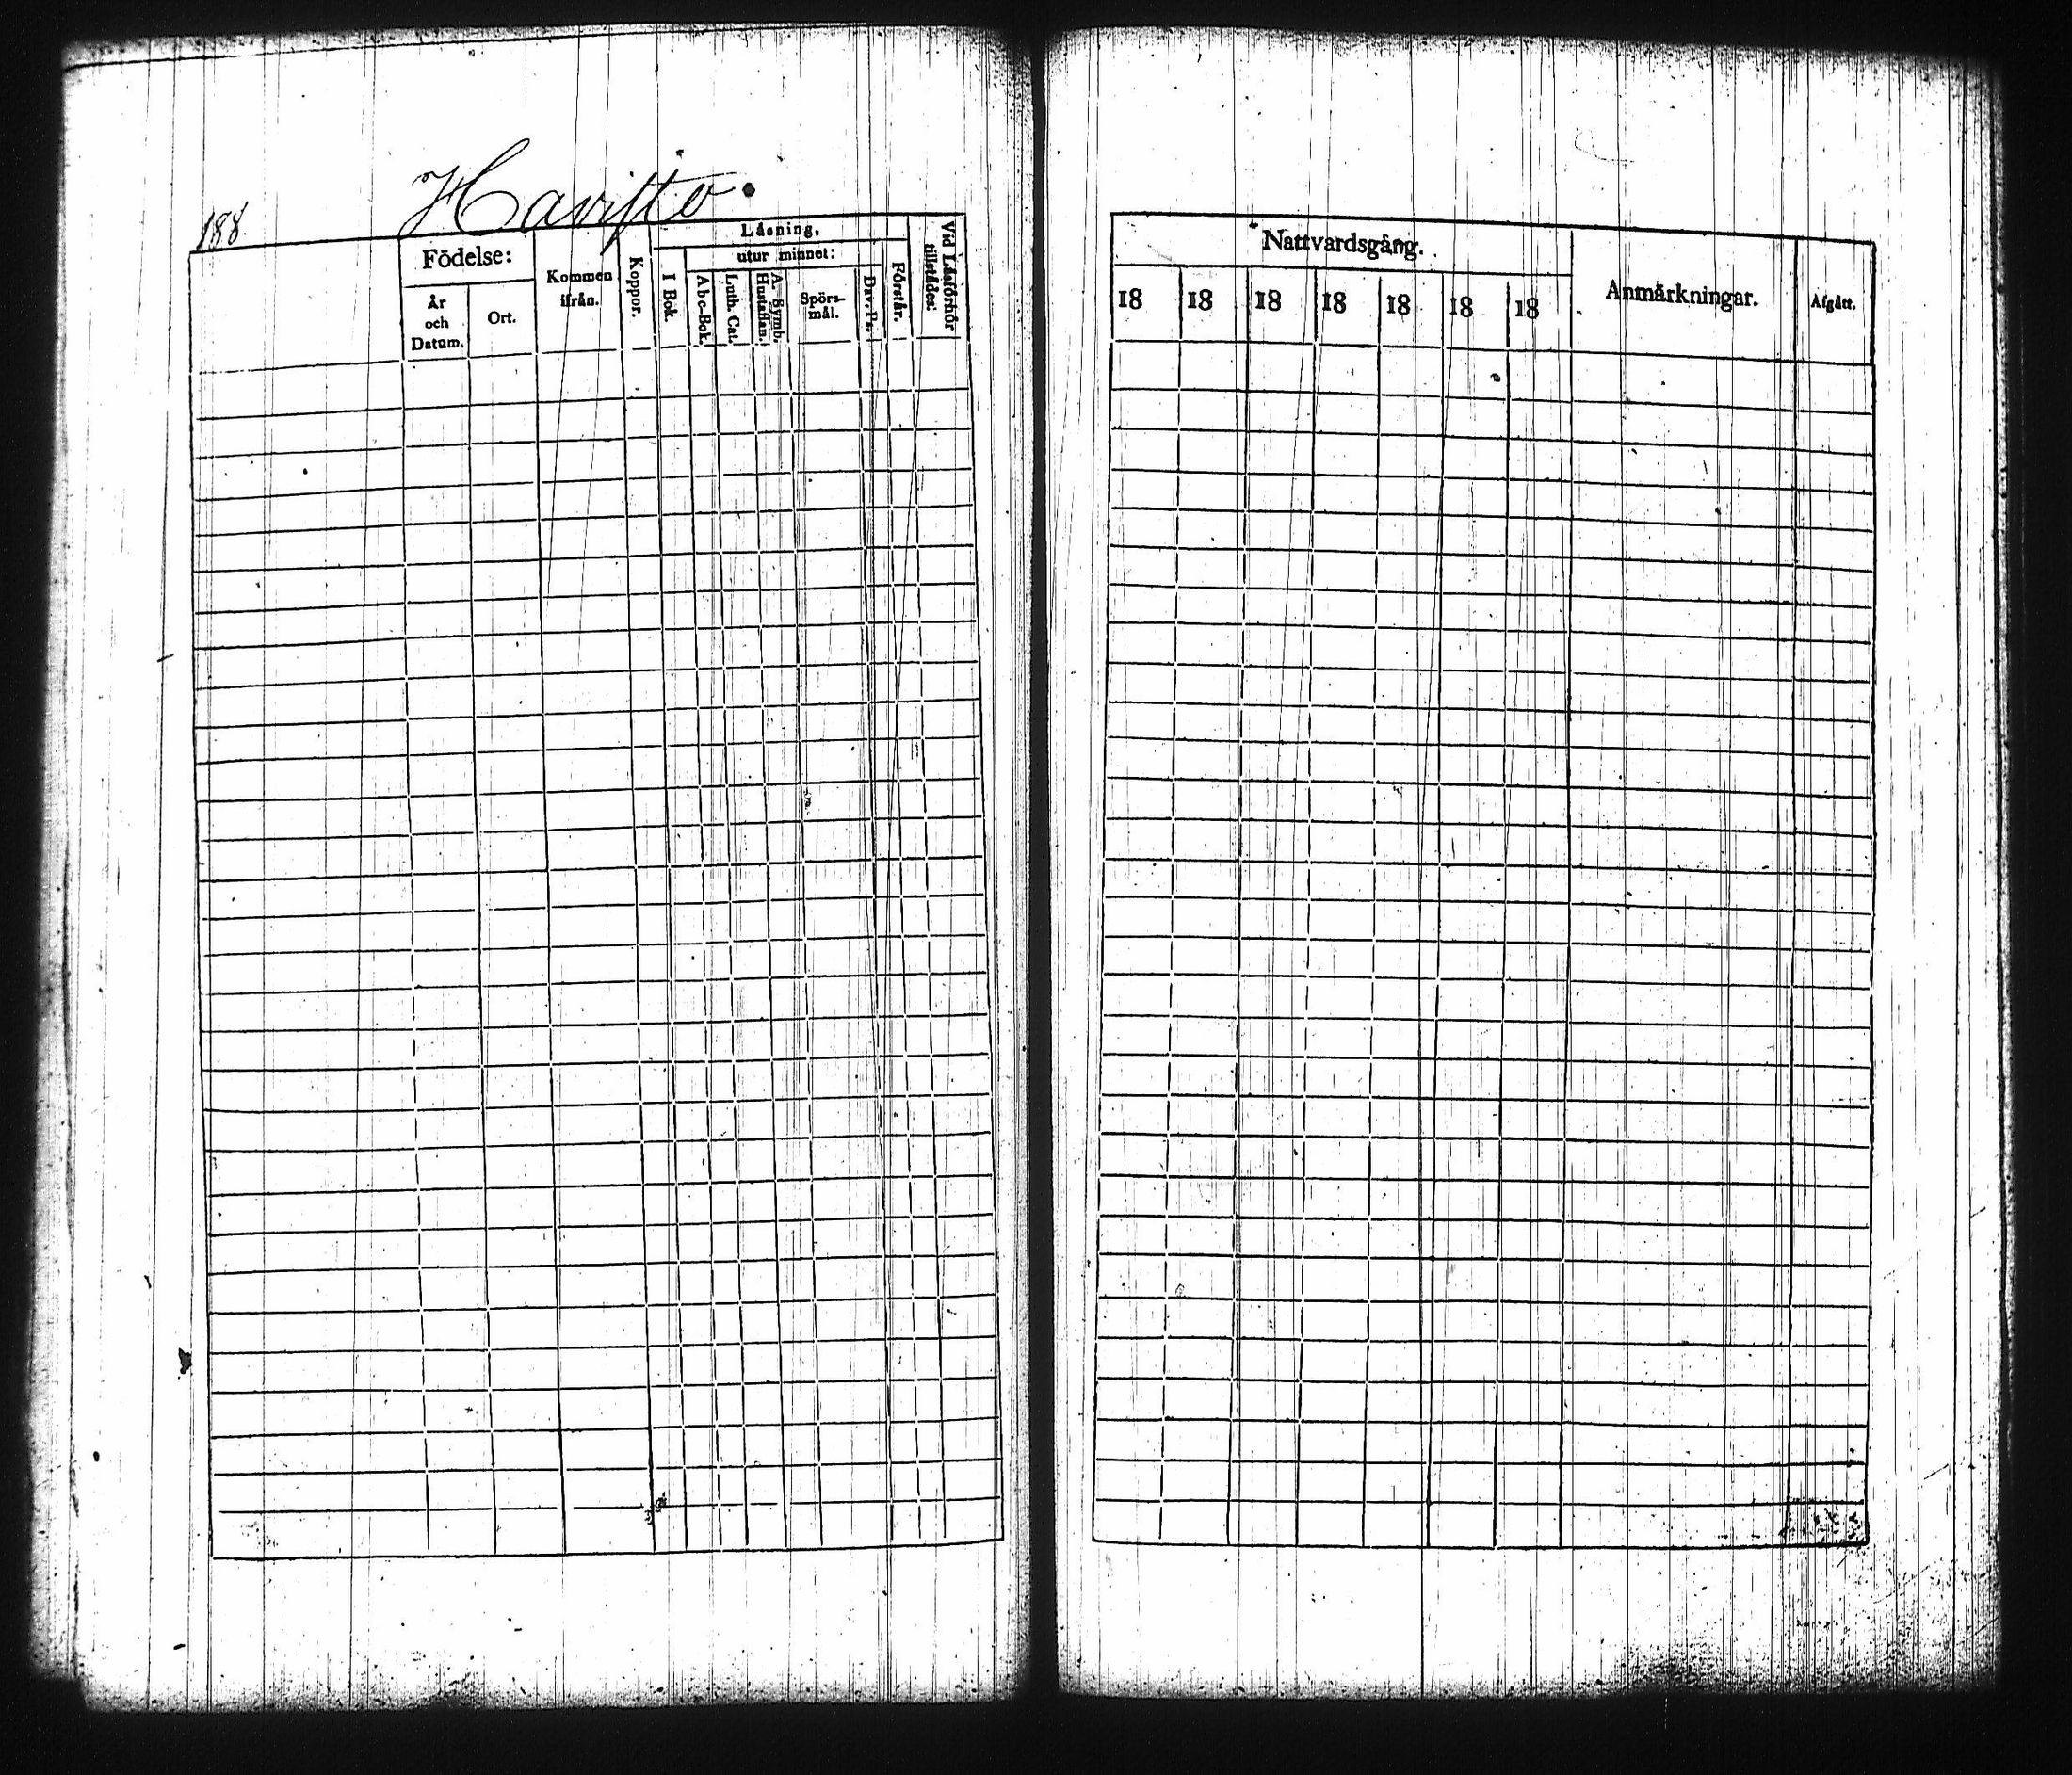 188
Havisto.
Födelse:
År och Datum.
Ort.
Kommen ifrån.
Koppor.
Läsning,
I Bok.
utur minnet:
Abc-Bok.
Luth. Cat.
A. Symb. Hustaflan.
Spörs- mål.
Dav. Ps.
Förstår.
Vid Läsförhör tillstädes:
Nattvardsgång.
18 18 18 18 18 18 18
Anmärkningar.
Afgått.